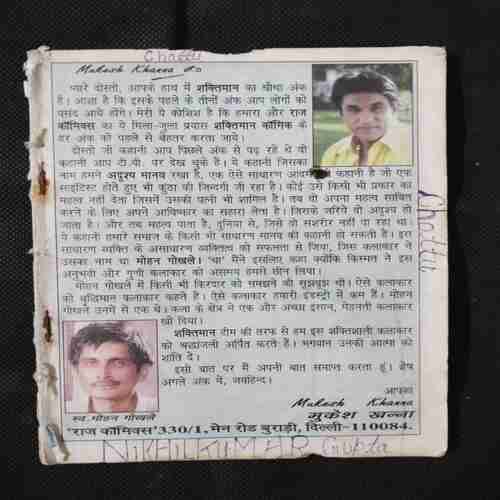 Chattu
Mukesh Khanna
प्यारे दोस्तों, आपके हाथ में शक्तिमान का चौथा अंक
है। आशा है कि इसके पहले के तीनों अंक आप लोगों को
पसंद आये होंगे। मेरी ये कोशिश है कि हमारा और राज
कॉमिक्स का ये मिला-जुला प्रयास शक्तिमान कॉमिक के
हर अंक को पहले से बेहतर करता जाये।
दोस्तों जो कहानी आप पिछले अंक से पढ़ रहे थे वो
कहानी आप टी.वी. पर देख चुके हैं। ये कहानी जिसका
नाम हमने अदृश्य मानव रखा है, एक ऐसे साधारण आदमी की कहानी है जो एक
साइंटिस्ट होते हुए भी कुंठा की जिन्दगी जी रहा है। कोई उसे किसी भी प्रकार का
महत्व नहीं देता जिसमें उसकी पत्नी भी शामिल है। तब वो अपना महत्व साबित
करने के लिए अपने आविष्कार का सहारा लेता है। जिसके जरिये वो अदृश्य हो
जाता है। और तब महत्व पाता है, दुनिया से, जिसे वो सशरीर नहीं पा रहा था।
ये कहानी हमारे समाज के किसी भी साधारण मानव की कहानी हो सकती है। इस
साधारण व्यक्ति के असाधारण व्यक्तित्व को सफलता से जिया, जिस कलाकार ने
उसका नाम था मोहन गोखले। 'था' मैंने इसलिए कहा क्योंकि किस्मत ने इस
अनुभवी और गुणी कलाकार को असमय हमसे छीन लिया।
मोहन गोखले में किसी भी किरदार को समझने की सूझबूझ थी। ऐसे कलाकार
को बुद्धिमान कलाकार कहते हैं। ऐसे कलाकार हमारी इंडस्ट्री में कम हैं। मोहन
गोखले उनमें से एक थे। कला के क्षेत्र ने एक और अच्छा इंसान, मेहनती कलाकार
खो दिया।
शक्तिमान टीम की तरफ से हम इस शक्तिशाली कलाकार
को श्रद्धांजली अर्पित करते हैं। भगवान उनकी आत्मा को
शांति दें।
इसी बात पर मैं अपनी बात समाप्त करता हूं। शेष
अगले अंक में, जयहिन्द।
आपका
Mukesh Khanna
मुकेश खन्ना
स्व.मोहन गोखले
'राज कॉमिक्स' 330/1, मेन रोड बुराड़ी, दिल्ली-110084.
NIKHILKUMAR Gupta
Chattu